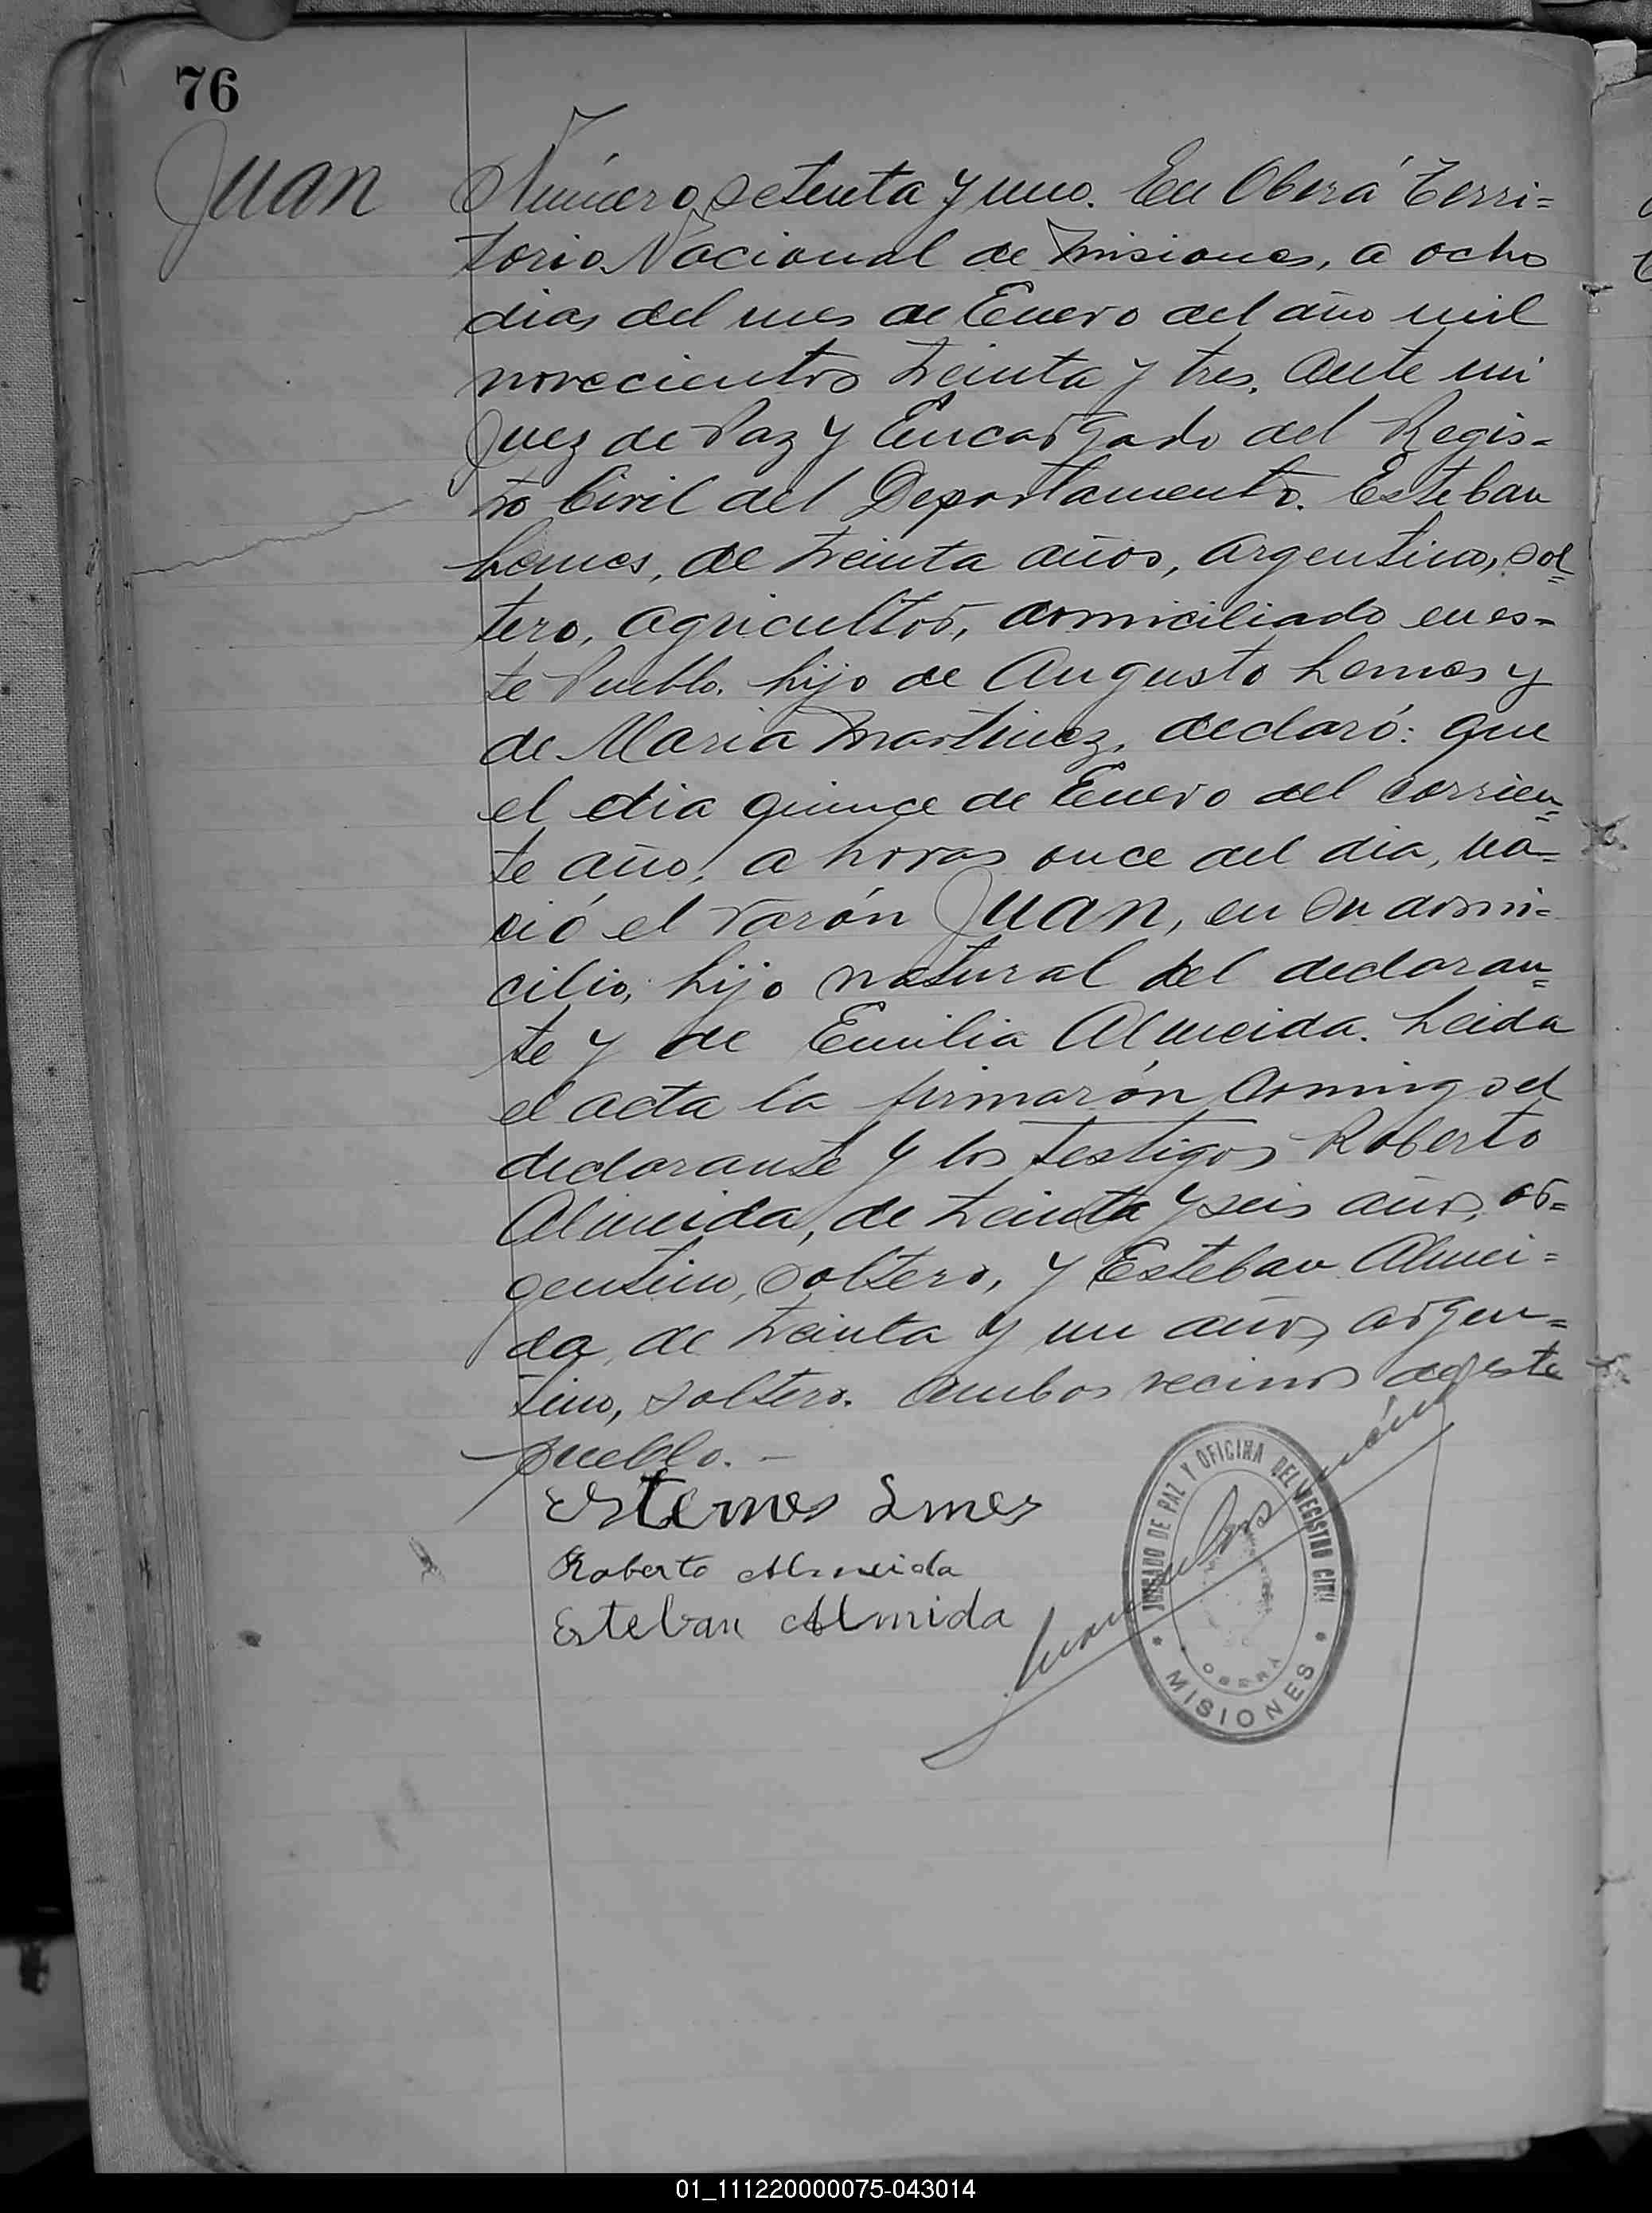 76
Juan
Número setenta y uno. En Oberá Terri=
torio Nacional de Misiones, a ocho
dias del mes de Enero del año mil
novecientos treinta y tres. Ante mi
Juez de Paz y Encargado del Regis=
tro Civil del Departamento. Esteban
Lemes, de treinta años, argentino, sol=
tero, agricultor, domiciliado en es=
te Pueblo. hijo de Augusto Lemes y
de Maria Martinez, declaró: que
el dia quince de Enero del corrien=
te año, a horas once del dia, na=
ció el varón Juan, en su domi=
cilio, hijo natural del declaran=
te y de Emilia Almeida. Leida
el acta la firmarón conmigo el
declarante y los testigos Roberto
Almeida, de treinta y seis años, ar=
gentino, soltero, y Esteban Almei=
da, de treinta y un años, argen=
tino, soltero. Ambos vecinos de este
pueblo. —
Roberto Almeida
Esteban Almida
JUZGADO DE PAZ Y OFICINA DEL REGISTRO CIVIL
OBERÁ
* MISIONES *
01_111220000075-043014